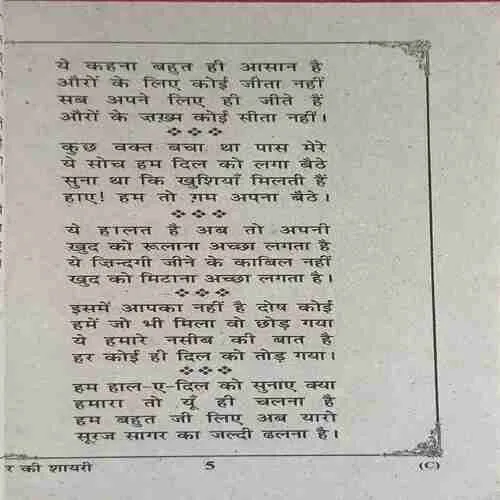 ये कहना बहुत ही आसान है
औरों के लिए कोई जीता नहीं
सब अपने लिए ही जीते हैं
औरों के ज़ख़्म कोई सीता नहीं।
कुछ वक्त बचा था पास मेरे
ये सोच हम दिल को लगा बैठे
सुना था कि खुशियाँ मिलती हैं
हाए! हम तो ग़म अपना बैठे।
ये हालत है अब तो अपनी
ख़ुद को रूलाना अच्छा लगता है
ये ज़िन्दगी जीने के काबिल नहीं
ख़ुद को मिटाना अच्छा लगता है।
इसमें आपका नहीं है दोष कोई
हमें जो भी मिला वो छोड़ गया
ये हमारे नसीब की बात है
हर कोई ही दिल को तोड़ गया।
हम हाल-ए-दिल को सुनाए क्या
हमारा तो यूँ ही चलना है
हम बहुत जी लिए अब यारो
सूरज सागर का जल्दी ढलना है।
र की शायरी 5 (C)